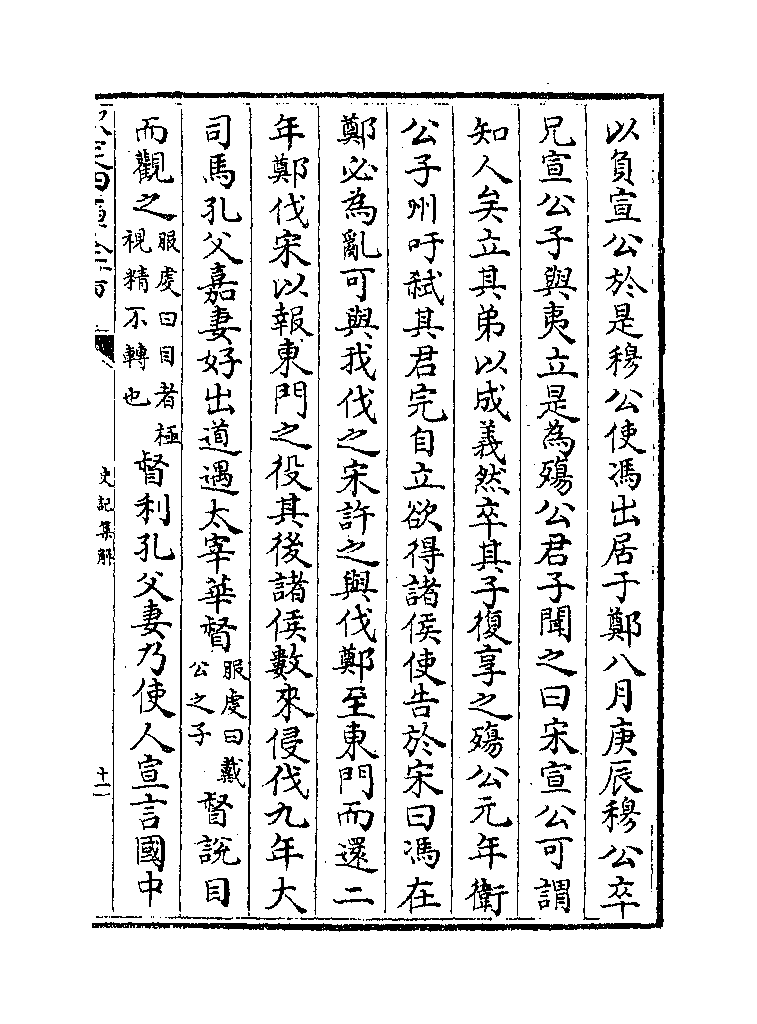 以負宣公於是穆公使馮出居于鄭八月庚辰穆公卒
兄宣公子與夷立是為殤公君子聞之曰宋宣公可謂
知人矣立其弟以成義然卒其子復享之殤公元年衛
公子州吁弑其君完自立欲得諸侯使告於宋曰馮在
鄭必為亂可與我伐之宋許之與伐鄭至東門而還二
年鄭伐宋以報東門之役其後諸侯數來侵伐九年大
司馬孔父嘉妻好出道遇太宰華督服虔曰戴公之子督說目
而觀之服虔曰目者極視精不轉也督利孔父妻乃使人宣言國中
史記集解
十一